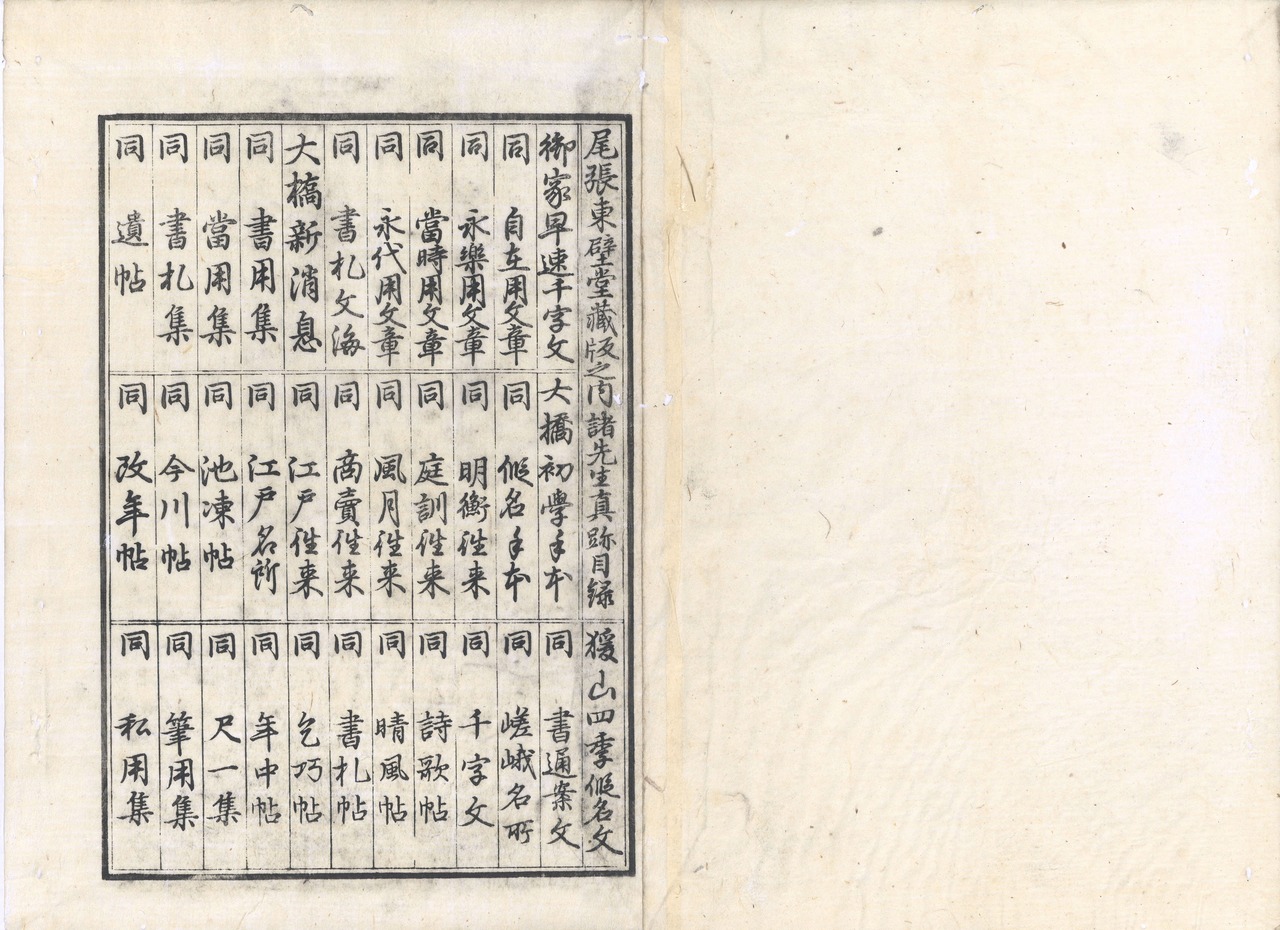 尾張東壁堂藏版之内諸先生真跡目録
御家早速千字文
同 自在用文章
同 永樂用文章
同 當時用文章
同 永代用文章
同 書札文海
大橋新消息
同 書用集
同 當用集
同 書札集
同 遺帖
大橋初學手本
同 假名手本
同 明衡往来
同 庭訓往来
同 風月往来
同 商賣往来
同 江戸往来
同 江戸名所
同 池凍帖
同 今川帖
同 改年帖
猨山四季假名文
同 書通案文
同 嵯峨名所
同 千字文
同 詩歌帖
同 晴風帖
同 書札帖
同 乞巧帖
同 年中帖
同 尺一集
同 筆用集
同 私用集